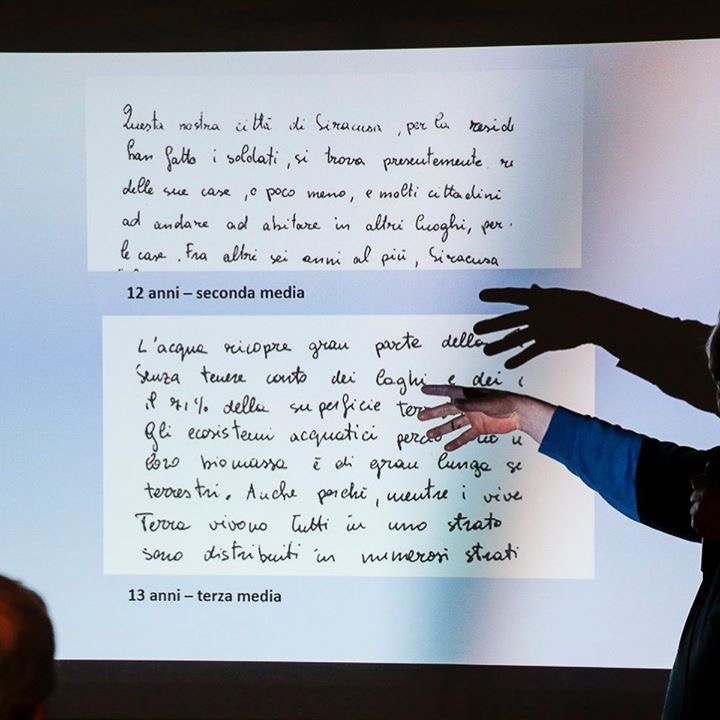 Questa nostra città di Siracusa, per la resid
han fatto i soldati, si trova presentemente
delle sue case, o poco meno, e molti cittadini
ad andare ad abitare in altri luoghi, per
le case. Fra altri sei anni al più, Siracusa
12 anni – seconda media
L'acqua ricopre gran parte della
Senza tenere conto dei laghi e dei
il 71% della superficie
Gli ecosistemi acquatici
loro biomassa è di gran lunga
terrestri. Anche perché, mentre i vive
Terra vivono tutti in uno strato
sono distribuiti in numerosi strati
13 anni – terza media